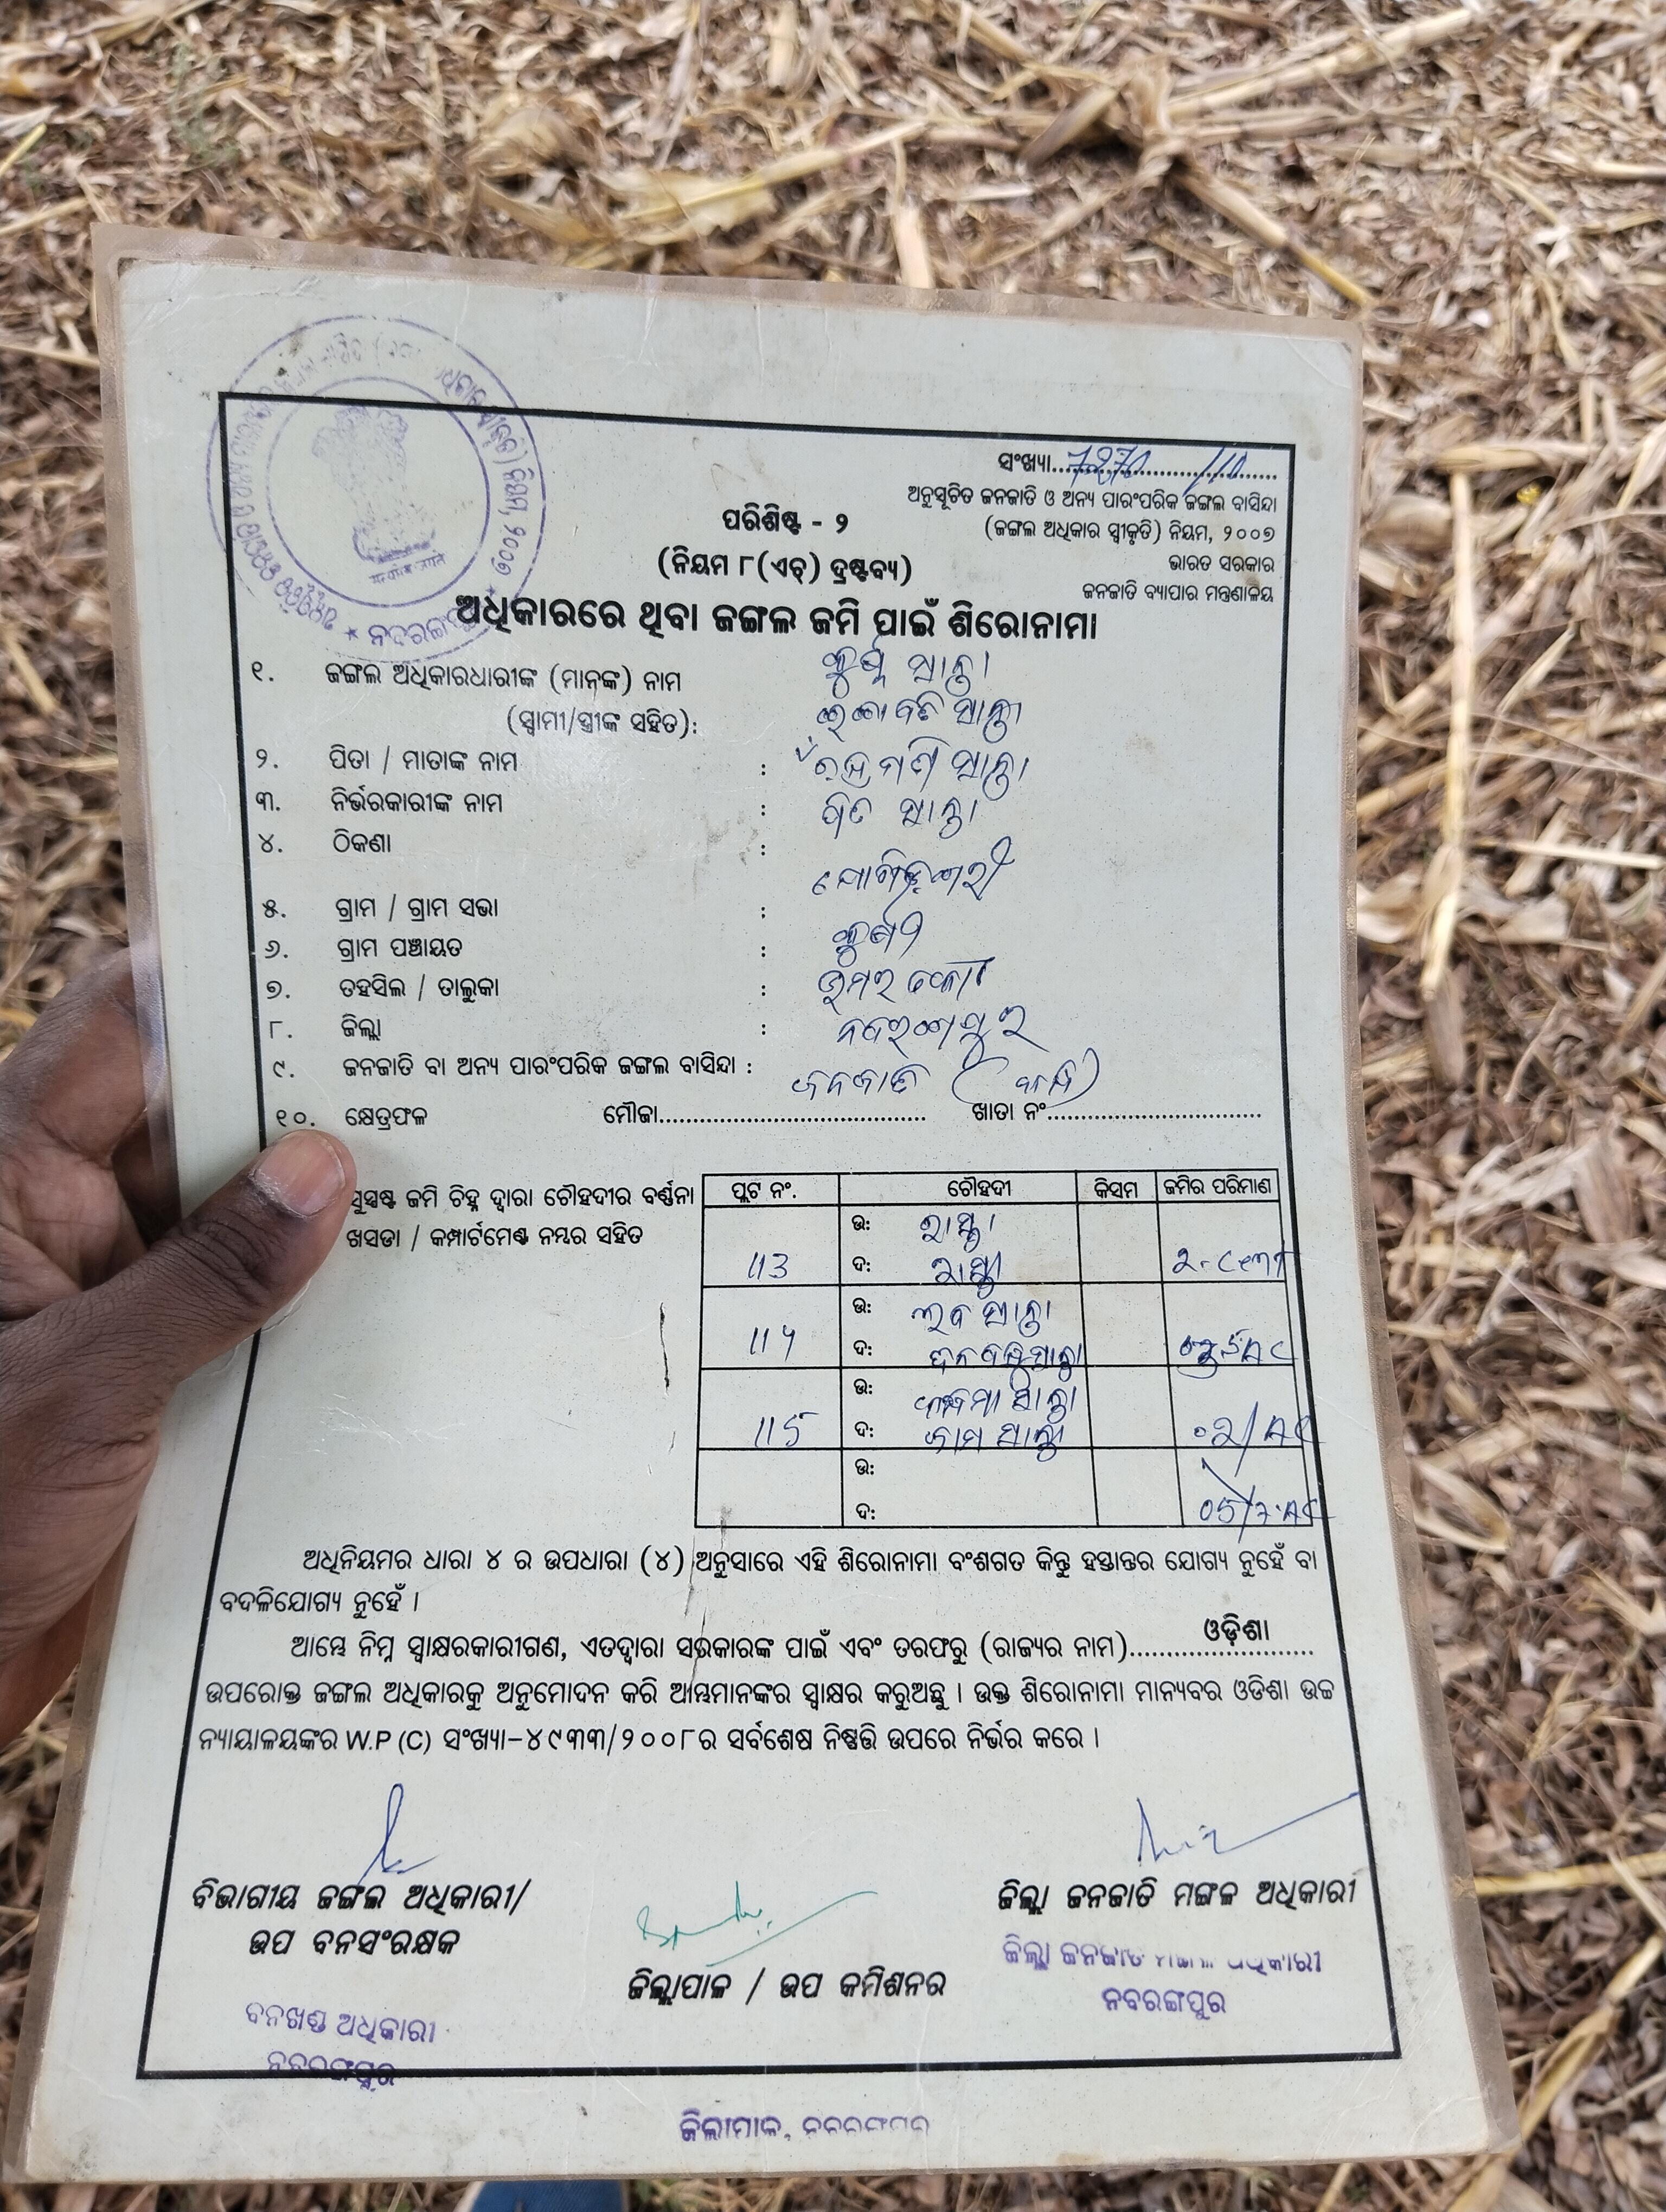 ସଂଖ୍ୟା..............................
ଅନୁସୂଚିତ ଜନଜାତି ଓ ଅନ୍ୟ ପାରଂପରିକ ଜଙ୍ଗଲ ବାସିନ୍ଦା
(ଜଙ୍ଗଲ ଅଧିକାର ସ୍ୱୀକୃତି) ନିୟମ, ୨୦୦୭
ଭାରତ ସରକାର
ଜନଜାତି ବ୍ୟାପାର ମନ୍ତ୍ରଣାଳୟ
ପରିଶିଷ୍ଟ - ୨
(ନିୟମ ୮(ଏଚ୍) ଦ୍ରଷ୍ଟବ୍ୟ)
ଅଧିକାରରେ ଥିବା ଜଙ୍ଗଲ ଜମି ପାଇଁ ଶିରୋନାମା
୧. ଜଙ୍ଗଲ ଅଧିକାରଧାରୀଙ୍କ (ମାନଙ୍କ) ନାମ
(ସ୍ୱାମୀ/ସ୍ତ୍ରୀଙ୍କ ସହିତ):
୨. ପିତା / ମାତାଙ୍କ ନାମ :
୩. ନିର୍ଭରକାରୀଙ୍କ ନାମ :
୪. ଠିକଣା :
୫. ଗ୍ରାମ / ଗ୍ରାମ ସଭା :
୬. ଗ୍ରାମ ପଞ୍ଚାୟତ :
୭. ତହସିଲ / ତାଲୁକା :
୮. ଜିଲ୍ଲା : ନବରଙ୍ଗପୁର
୯. ଜନଜାତି ବା ଅନ୍ୟ ପାରଂପରିକ ଜଙ୍ଗଲ ବାସିନ୍ଦା : ଜନଜାତି
୧୦. କ୍ଷେତ୍ରଫଳ ମୌଜା...................................... ଖାତା ନଂ..............................
ସୁସ୍ପଷ୍ଟ ଜମି ଚିହ୍ନ ଦ୍ୱାରା ଚୌହଦୀର ବର୍ଣ୍ଣନା
ଖସଡା / କମ୍ପାର୍ଟମେଣ୍ଟ ନମ୍ବର ସହିତ
ପ୍ଲଟ ନଂ. ଚୌହଦୀ କିସମ ଜମିର ପରିମାଣ
ଉ: ରାସ୍ତା
113 ଦ: ରାସ୍ତା
ଉ:
114 ଦ:
ଉ:
115 ଦ:
ଉ:
ଦ:
ଅଧିନିୟମର ଧାରା ୪ ର ଉପଧାରା (୪) ଅନୁସାରେ ଏହି ଶିରୋନାମା ବଂଶଗତ କିନ୍ତୁ ହସ୍ତାନ୍ତର ଯୋଗ୍ୟ ନୁହେଁ ବା
ବଦଳିଯୋଗ୍ୟ ନୁହେଁ ।
ଆମ୍ଭେ ନିମ୍ନ ସ୍ୱାକ୍ଷରକାରୀଗଣ, ଏତଦ୍ୱାରା ସରକାରଙ୍କ ପାଇଁ ଏବଂ ତରଫରୁ (ରାଜ୍ୟର ନାମ)......ଓଡ଼ିଶା......
ଉପରୋକ୍ତ ଜଙ୍ଗଲ ଅଧିକାରକୁ ଅନୁମୋଦନ କରି ଆମ୍ଭମାନଙ୍କର ସ୍ୱାକ୍ଷର କରୁଅଛୁ । ଉକ୍ତ ଶିରୋନାମା ମାନ୍ୟବର ଓଡିଶା ଉଚ୍ଚ
ନ୍ୟାୟାଳୟଙ୍କର W.P (C) ସଂଖ୍ୟା-୪୯୩୩/୨୦୦୮ର ସର୍ବଶେଷ ନିଷ୍ପତ୍ତି ଉପରେ ନିର୍ଭର କରେ ।
ବିଭାଗୀୟ ଜଙ୍ଗଲ ଅଧିକାରୀ/
ଉପ ବନସଂରକ୍ଷକ
ଜିଲ୍ଲାପାଳ / ଉପ କମିଶନର
ଜିଲ୍ଲା ଜନଜାତି ମଙ୍ଗଳ ଅଧିକାରୀ
ଜିଲ୍ଲା ଜନଜାତି ମଙ୍ଗଳ ଅଧିକାରୀ
ନବରଙ୍ଗପୁର
ବନଖଣ୍ଡ ଅଧିକାରୀ
ନବରଙ୍ଗପୁର
ଜିଲ୍ଲାପାଳ, ନବରଙ୍ଗପୁର